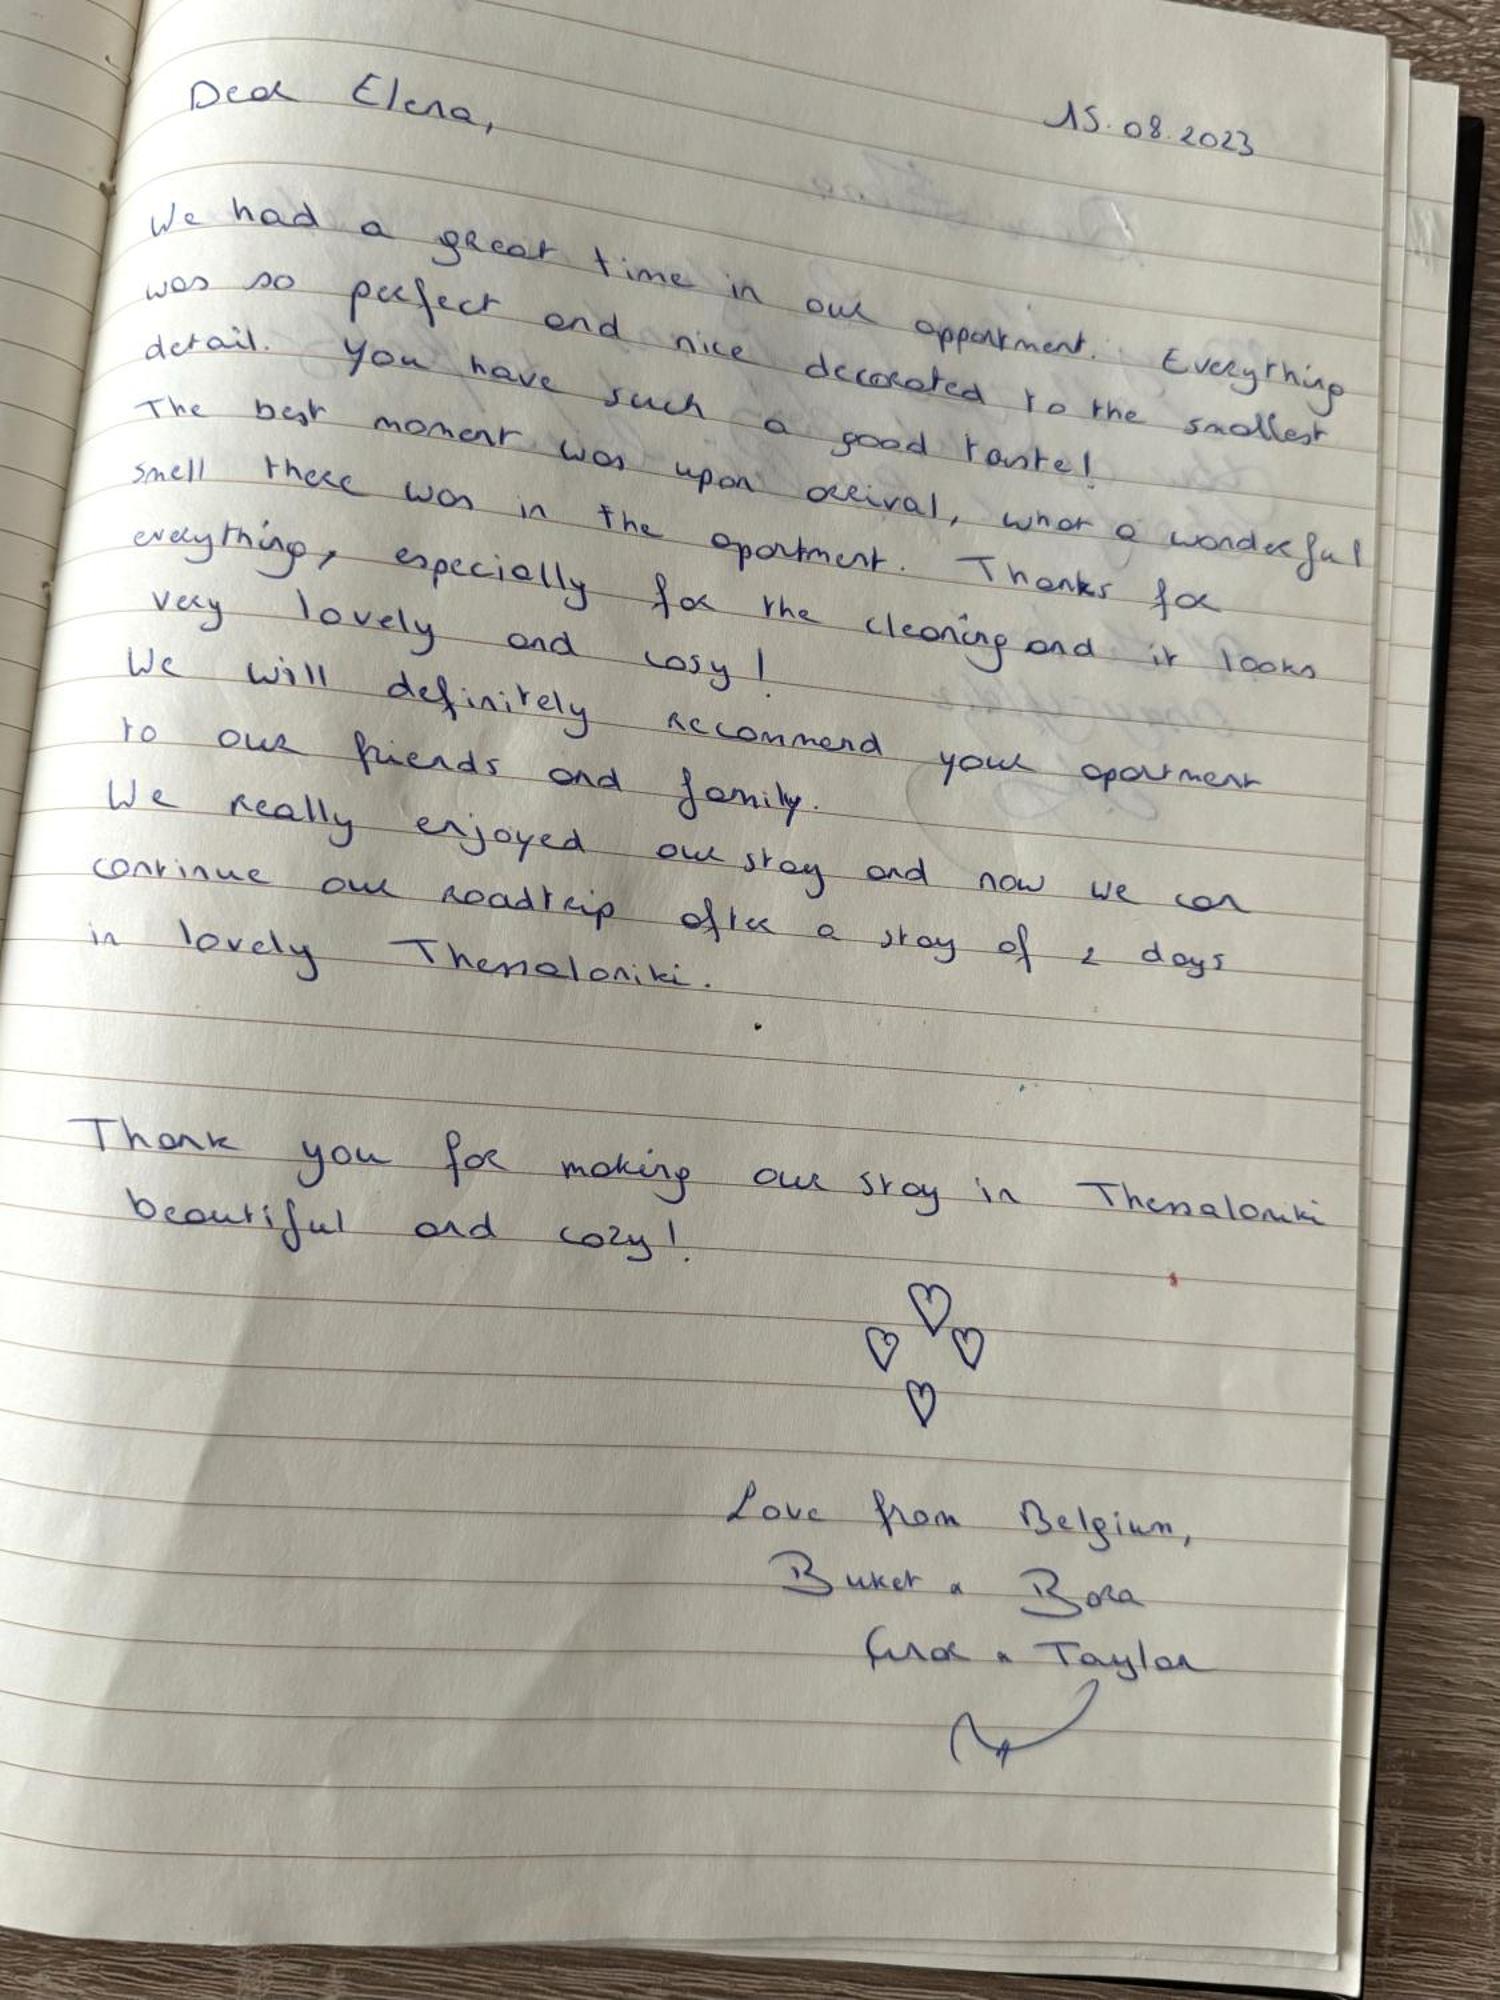 Dear Elena,
15.08.2023
We had a great time in our appartment. Everything
was so perfect and nice decorated to the smallest
detail. You have such a good taste!
The best moment was upon arrival, what a wonderful
smell there was in the apartment. Thanks for
everything, especially for the cleaning and it looks
very lovely and cosy!
We will definitely recommend your apartment
to our friends and family.
We really enjoyed our stay and now we can
continue our roadtrip after a stay of 2 days
in lovely Thessaloniki.
Thank you for making our stay in Thessaloniki
beautiful and cozy!
Love from Belgium,
Buket & Bora
& Taylan